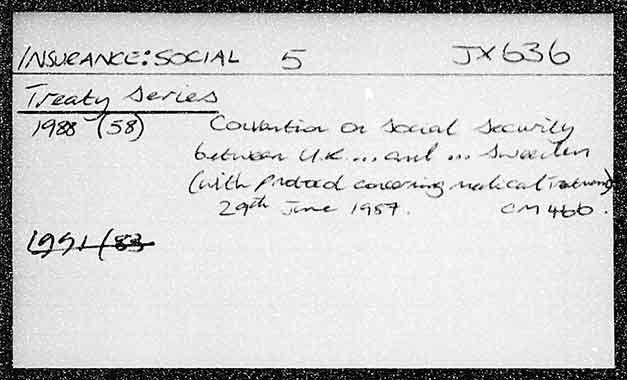 INSURANCE: SOCIAL 5 JX636
Treaty Series
1988 (58) Convention on Social Security
between U.K. ... and ... Sweden
(with Protocol concerning medical treatment)
29th June 1987. CM 466.
1991/83